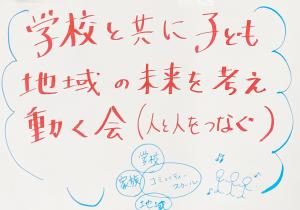 学校と共に子ども
地域の未来を考え
動く会(人と人をつなぐ)
学校
家族 コミュニティー
スクール
地域